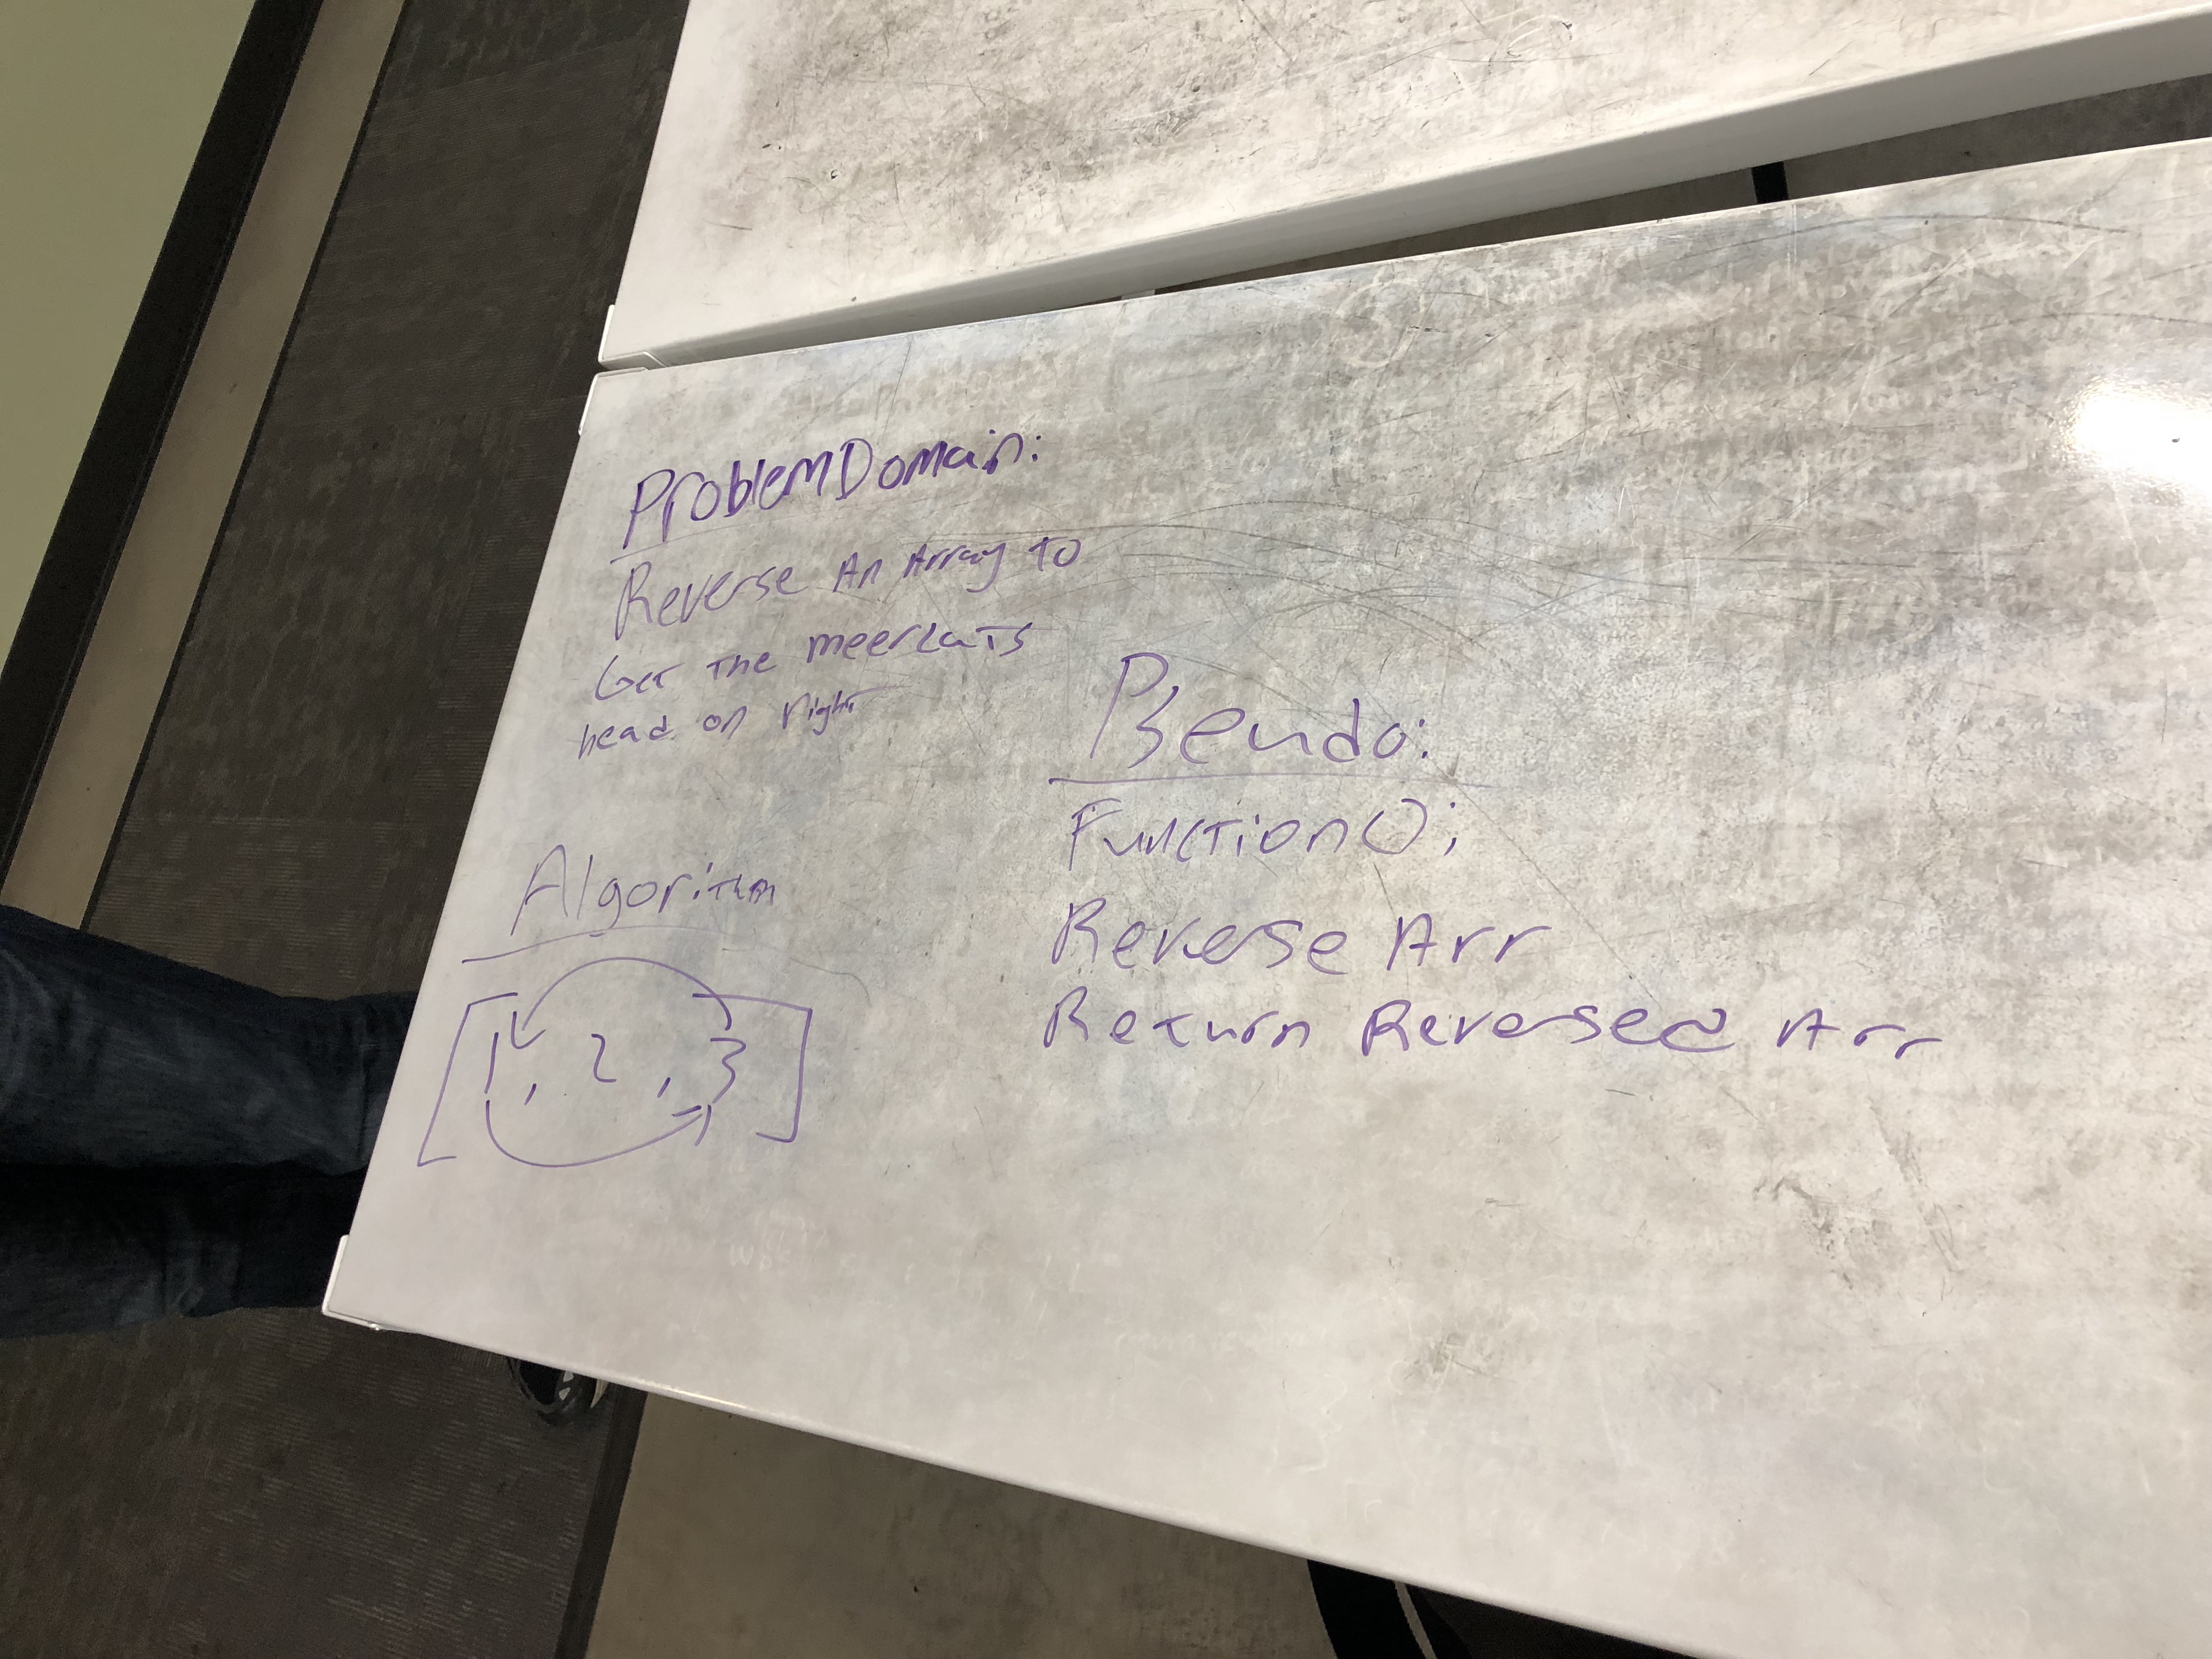 Problem Domain:
Reverse An Array to
Get the meerscats
head on right
Algorithm
[1, 2, 3]
Pseudo:
Function();
Reverse Arr
Return Reversed Arr